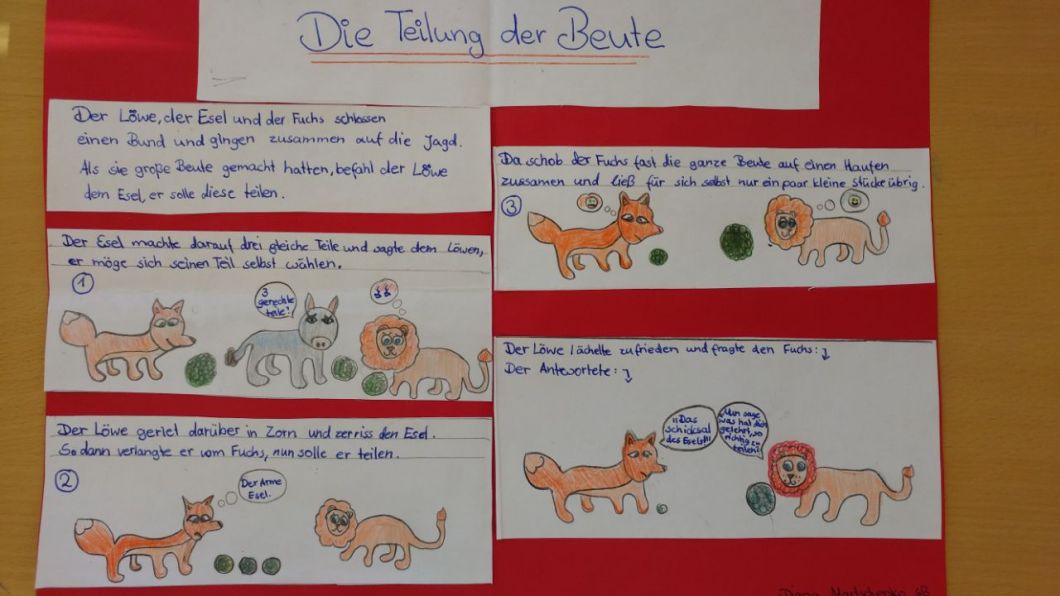 Die Teilung der Beute
Der Löwe, der Esel und der Fuchs schlossen
einen Bund und gingen zusammen auf die Jagd.
Als sie große Beute gemacht hatten, befahl der Löwe
dem Esel, er solle diese teilen.
Der Esel machte darauf drei gleiche Teile und sagte dem Löwen,
er möge sich seinen Teil selbst wählen.
1
3
gerechte
teile?
Der Löwe geriet darüber in Zorn und zerriss den Esel.
So dann verlangte er vom Fuchs, nun solle er teilen.
2
Der Arme
Esel.
Da schob der Fuchs fast die ganze Beute auf einen Haufen
zussamen und ließ für sich selbst nur ein paar kleine Stücke übrig.
3
Der Löwe lächelte zufrieden und fragte den Fuchs: ↴
Der Antwortete: ↴
"Das
schicksal
des Esels!!"
Nun sage,
was hat dich
gelehrt, so
richtig zu
teilen?